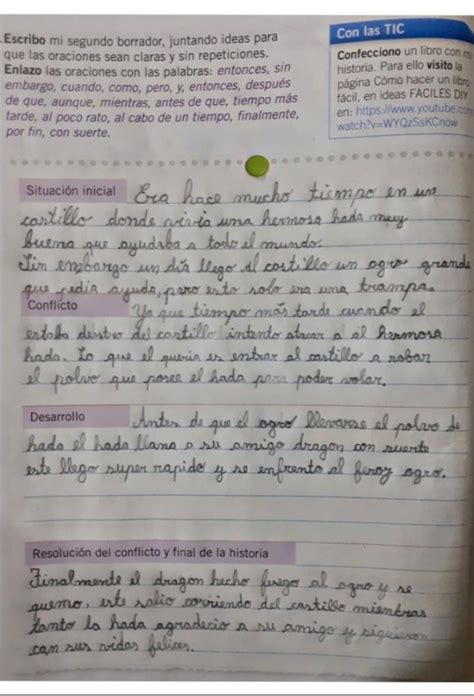 Escribo mi segundo borrador, juntando ideas para
que las oraciones sean claras y sin repeticiones.
Enlazo las oraciones con las palabras: entonces, sin
embargo, cuando, como, pero, y, entonces, después
de que, aunque, mientras, antes de que, tiempo más
tarde, al poco rato, al cabo de un tiempo, finalmente,
por fin, con suerte.
Con las TIC
Confecciono un libro con mi
historia. Para ello visito la
página Cómo hacer un libro
fácil, en ideas FACILES DIY
en: https://www.youtube.com
watch?v=WYQzSsKCnow
Situación inicial Era hace mucho tiempo en un
castillo donde vivia una hermosa hada muy
buena que ayudaba a todo el mundo.
Sin embargo un día llego al castillo un ogro grande
que pedia ayuda, pero esto solo era una trampa.
Conflicto Ya que tiempo más tarde cuando el
estaba dentro del castillo intento atacar a al hermosa
hada. Lo que el queria es entrar al castillo a robar
el polvo que posee el hada para poder volar.
Desarrollo Antes de que el ogro llevarse el polvo de
hada el hada llama a su amigo dragon con suerte
este llego super rapido y se enfrento al feroz ogro.
Resolución del conflicto y final de la historia
Finalmente el dragon hecho fuego al ogro y se
quemo, este salio corriendo del castillo mientras
tanto la hada agradecio a su amigo y siguieron
con sus vidas felices.